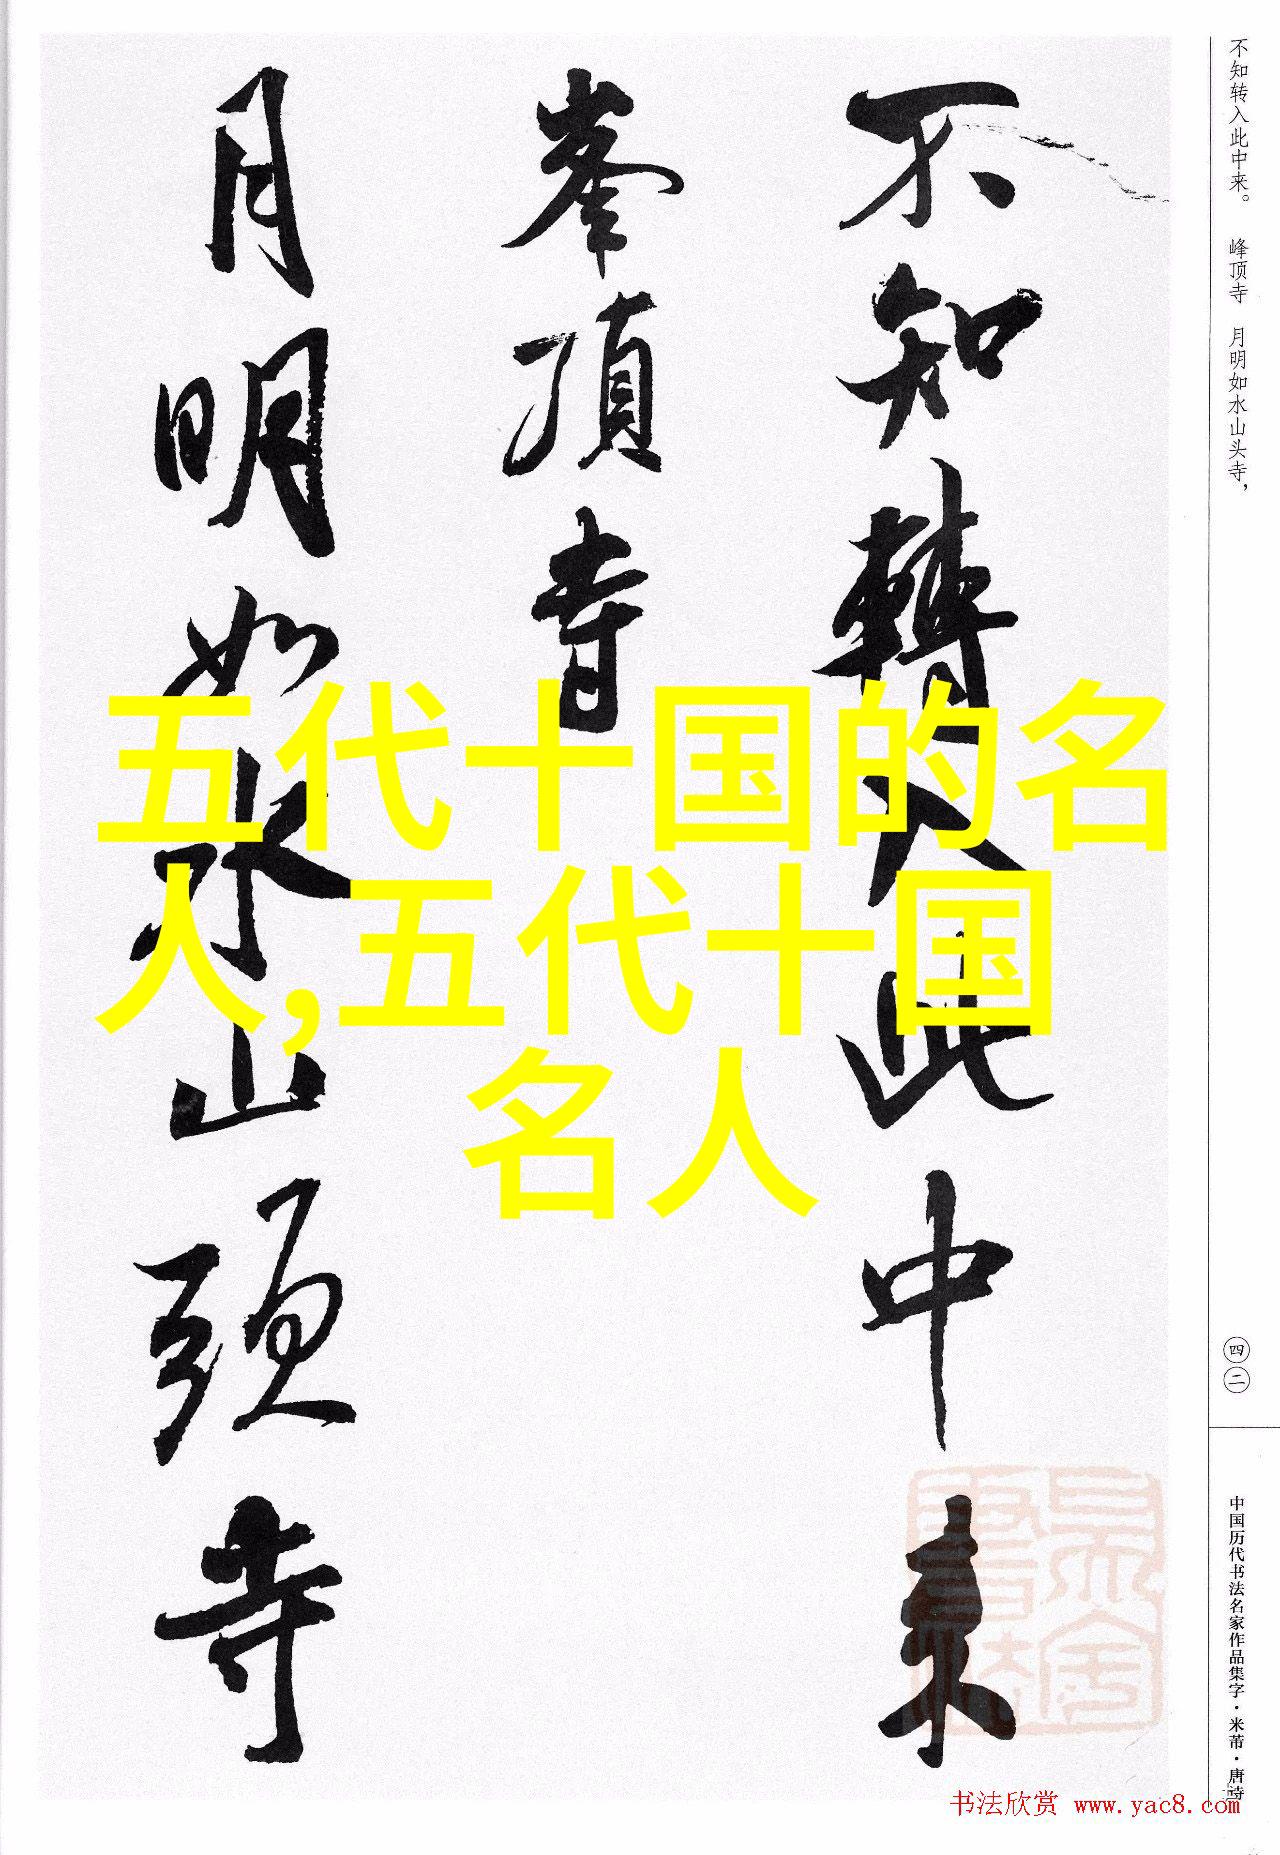 不知轉入此中来
峯頂寺
月明如水山頭寺
五代十国的名
人,五代十国
名人
不知转入此中来。 峰顶寺 月明如水山头寺,
四二
中国历代书法名家作品集字·米芾·唐诗
书法欣赏 www.yac8.com